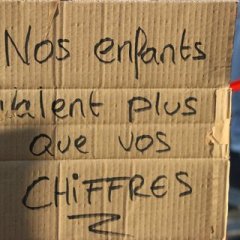 Nos enfants
valent plus
que vos
CHiFFRES